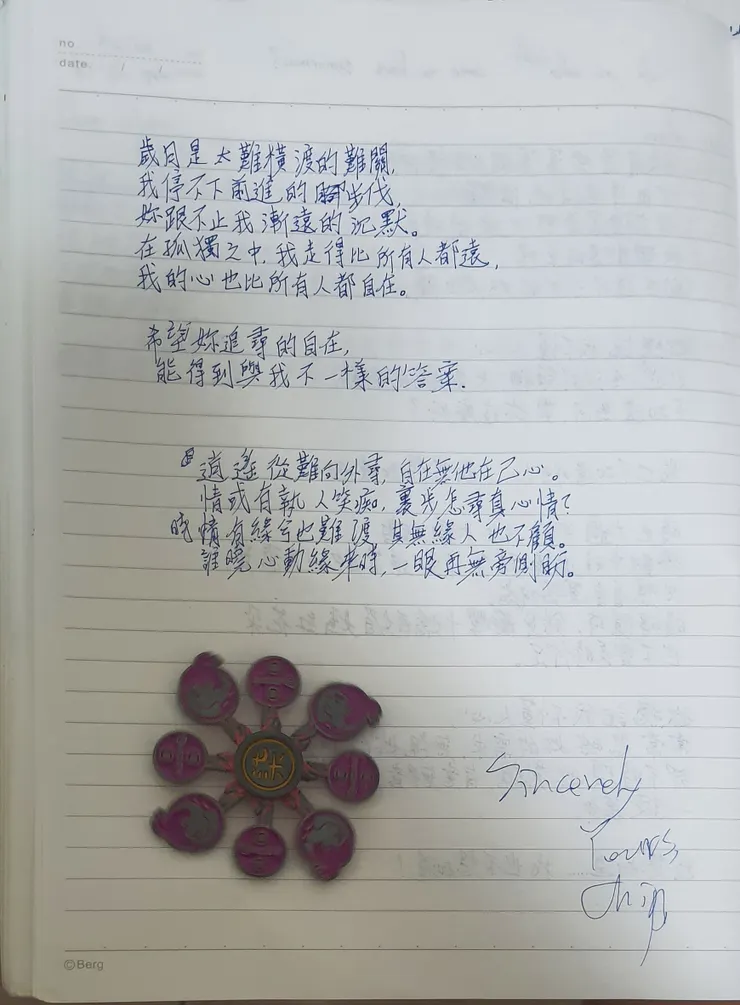 no
date. / /
歲月是太難橫渡的難關,
我停不下前進的腳步伐,
妳跟不上我漸遠的沉默。
在孤獨之中,我走得比所有人都遠,
我的心也比所有人都自在。
希望妳追尋的自在,
能得到與我不一樣的答案.
逍遙從難向外尋,自在無他在己心。
情或有執人笑痴,裹步怎尋真心情?
惜有緣兮也難渡 其無緣人也不顧。
誰曉心動緣來時,一眼再無旁側盼。
Sincerely
Yours
©Berg